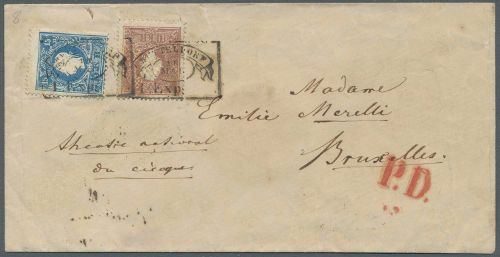 8.
Madame
Emilie Merelli
Bruxelles.
Theatre national
du cirque
P.D.